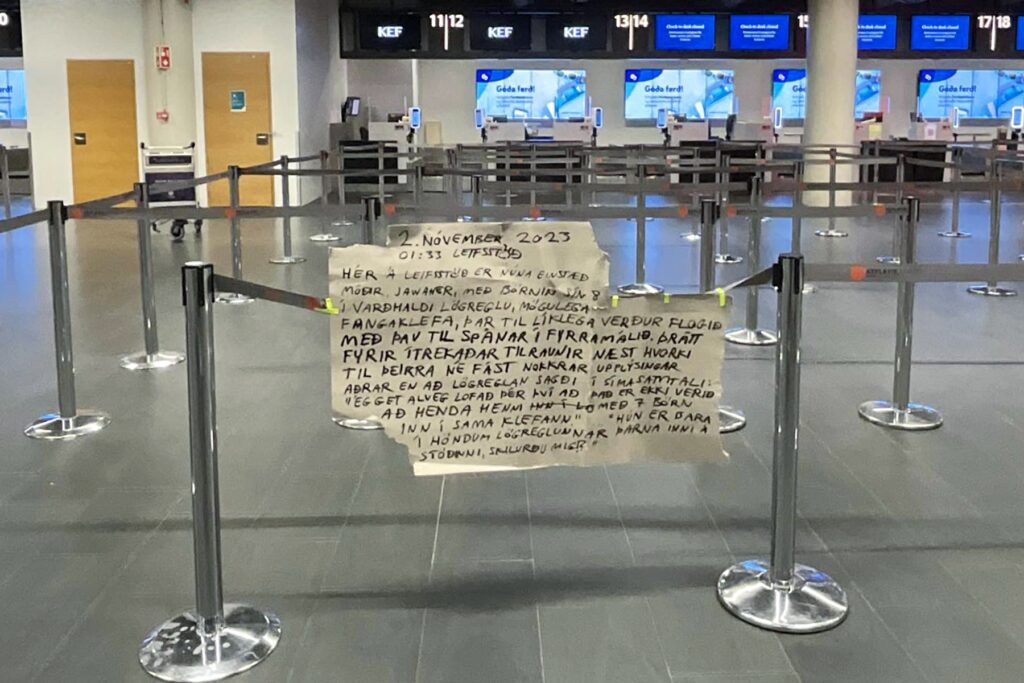 11|12
13|14
17|18
KEF
KEF
KEF
Check-in desk closed
Check-in desk closed
Check-in desk closed
Check-in desk closed
Góða ferð!
Góða ferð!
Góða
Góða ferð!
2. NÓVEMBER 2023
01:33 LEIFSSTÖÐ
HÉR Á LEIFSSTÖÐ ER NÚNA EINSTÆÐ
MÓÐIR, JAWAHER, MEÐ BÖRNIN SÍN 8
Í VARÐHALDI LÖGREGLU, MÖGULEGA
FANGAKLEFA, ÞAR TIL LÍKLEGA VERÐUR FLOGIÐ
MEÐ ÞAU TIL SPÁNAR Í FYRRAMÁLIÐ. ÞRÁTT
FYRIR ÍTREKAÐAR TILRAUNIR NÆST HVORKI
TIL ÞEIRRA NÉ FÁST NOKKRAR UPPLÝSINGAR
AÐRAR EN AÐ LÖGREGLAN SAGÐI Í SÍMASAMTALI:
"ÉG GET ALVEG LOFAÐ ÞÉR ÞVÍ AÐ ÞAÐ ER EKKI VERIÐ
AÐ HENDA HENNI INN Í MEÐ 7 BÖRN
INN Í SAMA KLEFANN" "HÚN ER BARA
Í HÖNDUM LÖGREGLUNNAR ÞARNA INNI Á
STÖÐINNI, SKILURÐU MIG?"